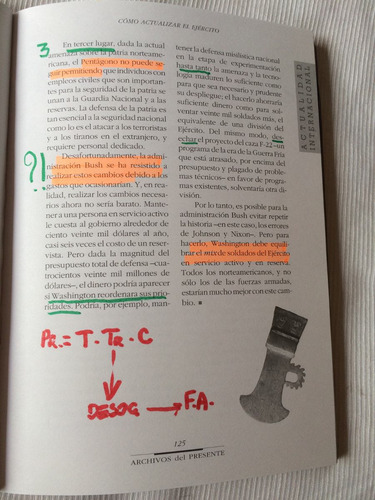 CÓMO ACTUALIZAR EL EJÉRCITO
3
En tercer lugar, dada la actual
amenaza sobre la patria norteame-
ricana, el Pentágono no puede se-
guir permitiendo que individuos con
empleos civiles que son importan-
tes para la seguridad de la patria se
unan a la Guardia Nacional y a las
reservas. La defensa de la patria es
tan esencial a la seguridad nacional
como lo es el atacar a los terroristas
y a los tiranos en el extranjero, y
requiere personal dedicado.
?!
Desafortunadamente, la admi-
nistración Bush se ha resistido a
realizar estos cambios debido a los
gastos que ocasionarían. Y, en rea-
lidad, realizar los cambios necesa-
rios ahora no sería barato. Mante-
ner a una persona en servicio activo
le cuesta al gobierno alrededor de
ciento veinte mil dólares al año,
casi seis veces el costo de un reser-
vista. Pero dada la magnitud del
presupuesto total de defensa –cua-
trocientos veinte mil millones de
dólares–, el dinero podría aparecer
si Washington reordenara sus prio-
ridades. Podría, por ejemplo, man-
tener la defensa misilística nacional
en la etapa de experimentación
hasta tanto la amenaza y la tecno-
logía maduren lo suficiente como
para que sea necesario y prudente
su despliegue; el hacerlo ahorraría
suficiente dinero como para sol-
ventar veinte mil soldados más, el
equivalente de una división del
Ejército. Del mismo modo, des-
echar el proyecto del caza F-22 –un
programa de la era de la Guerra Fría
que está atrasado, por encima del
presupuesto y plagado de proble-
mas técnicos– en favor de progra-
mas existentes, solventaría otra di-
visión.
Por lo tanto, es posible para la
administración Bush evitar repetir
la historia –en este caso, los errores
de Johnson y Nixon–. Pero para
hacerlo, Washington debe equili-
brar el mix de soldados del Ejército
en servicio activo y en reserva.
Todos los norteamericanos, y no
sólo los de las fuerzas armadas,
estarían mucho mejor con este cam-
bio.
ACTUALIDAD
INTERNACIONAL
PR. = T. TR. C
DESOG → F.A.
125
ARCHIVOS del PRESENTE